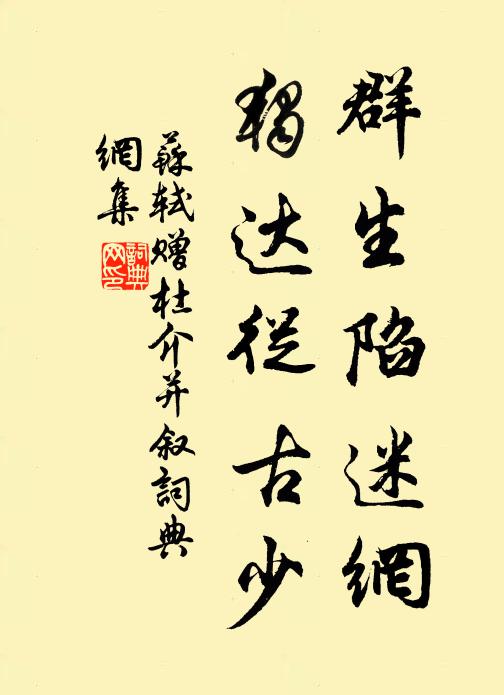 群生陷迷網
獨达從古少
蘇軾赠杜介并叙詞典
網集
詞典
网印